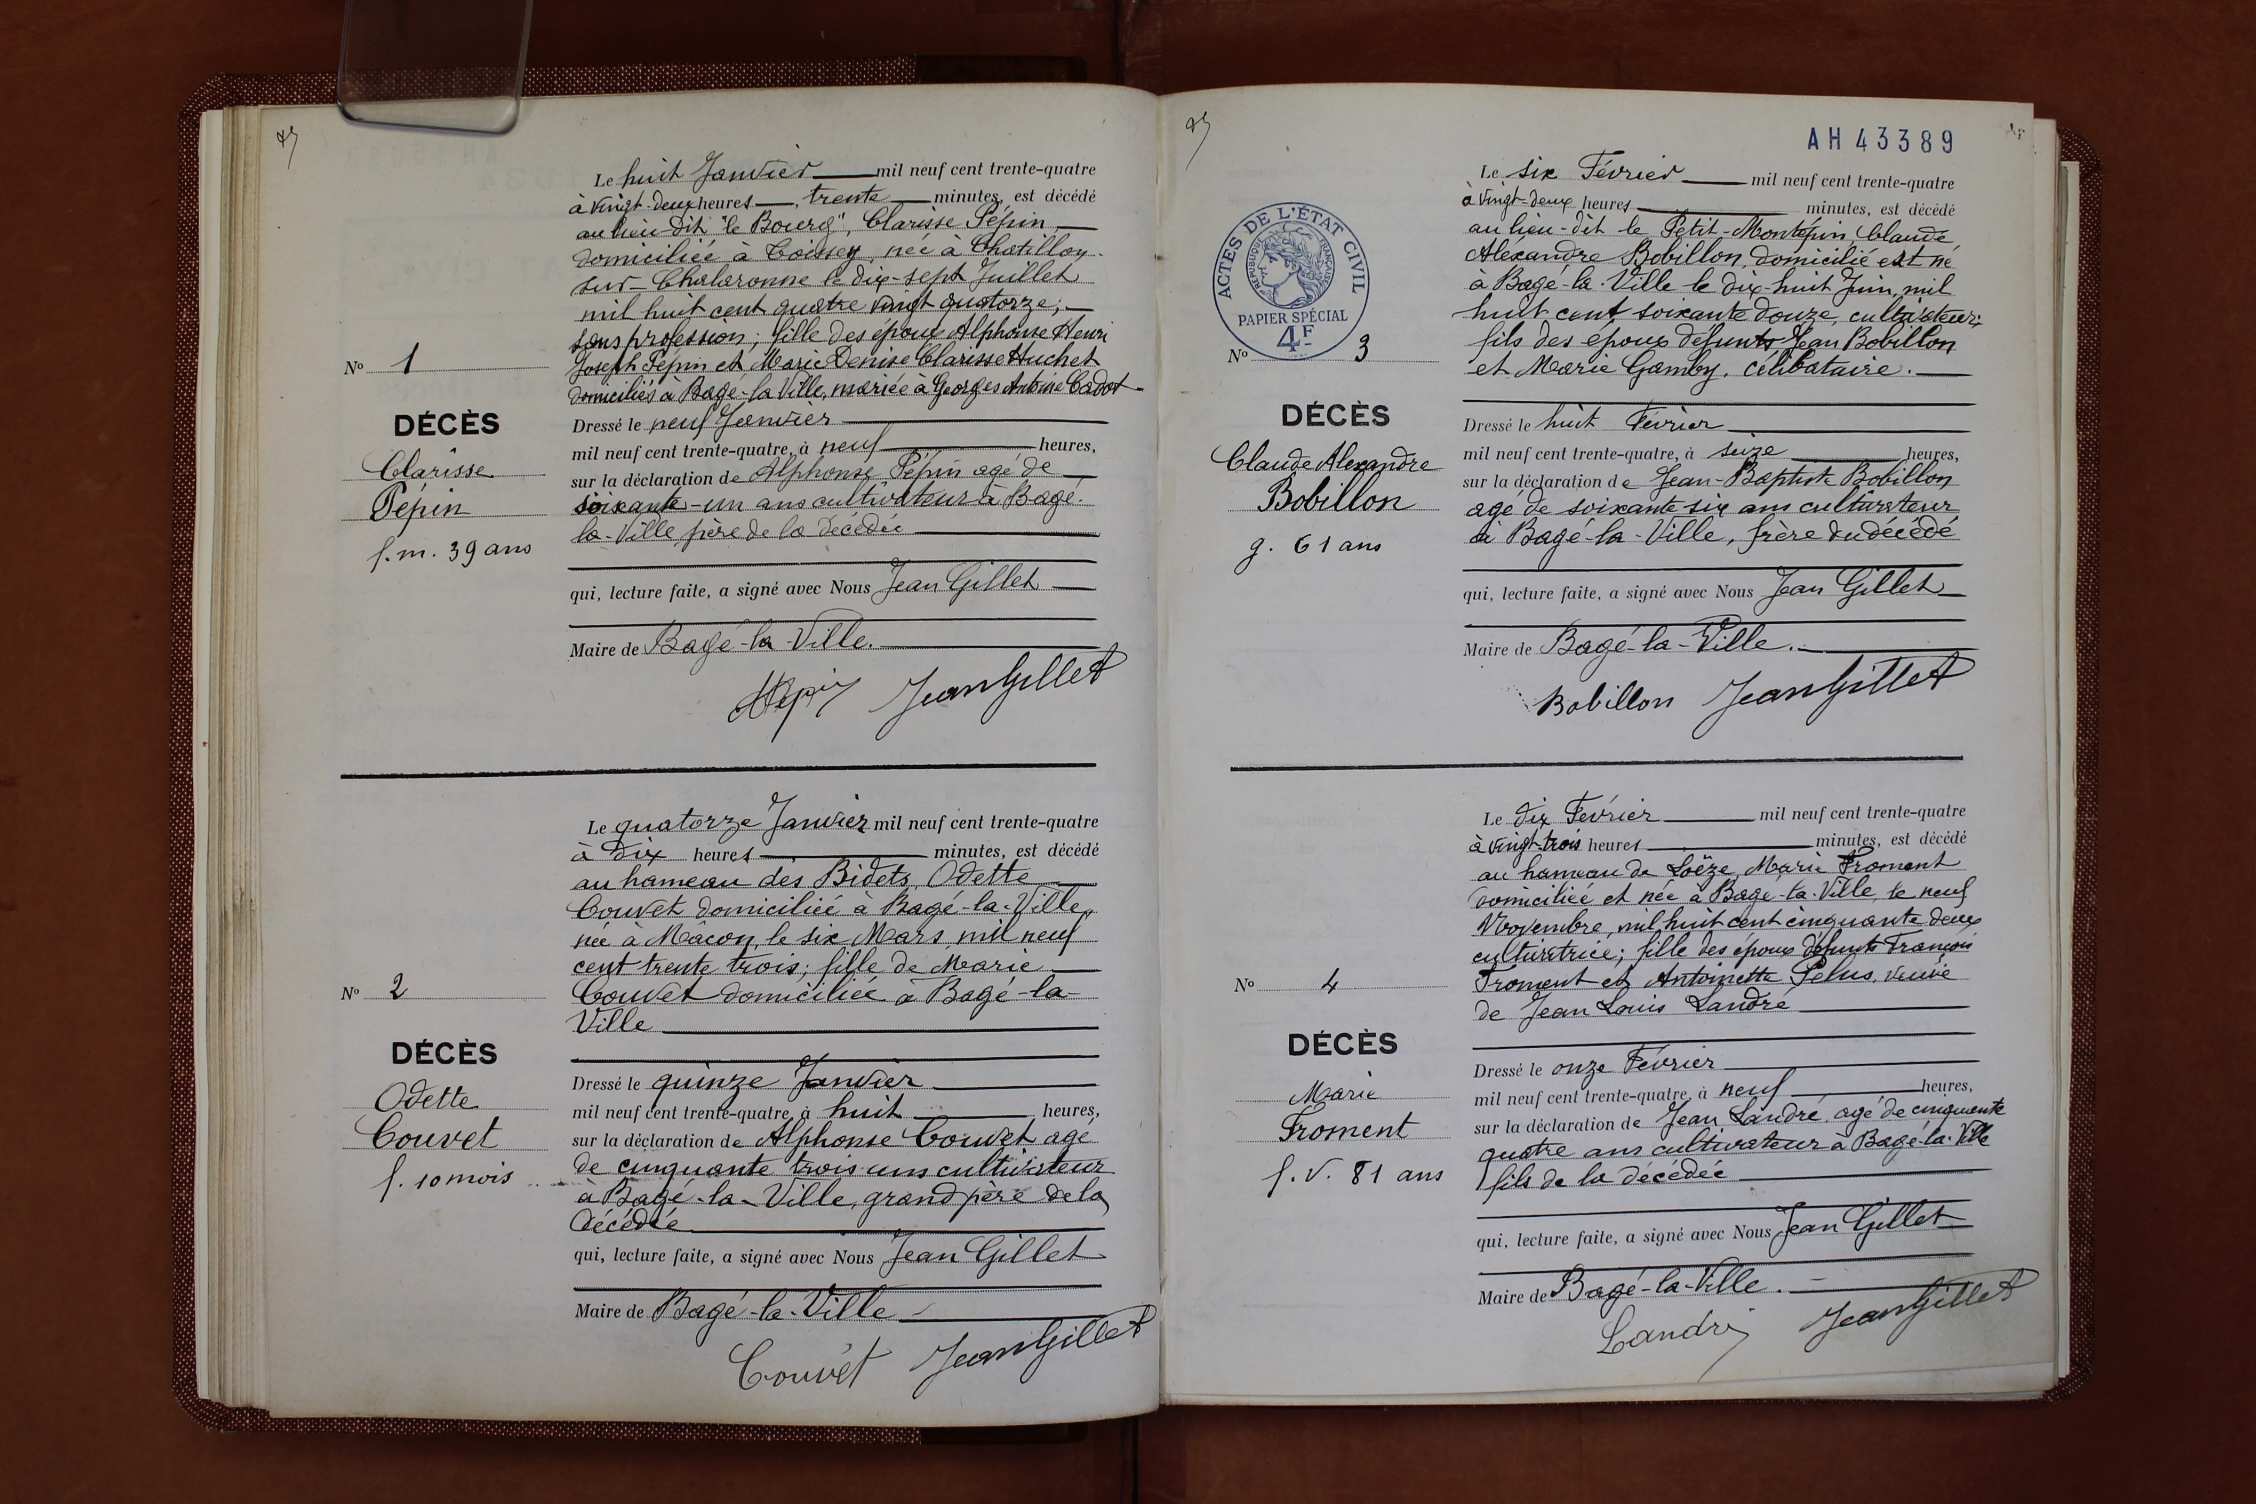 Le huit Janvier mil neuf cent trente-quatre
à vingt-deux heures, trente minutes, est décédé
au lieu dit "le Bourg", Clarisse Pépin,
domiciliée à Thoissey, née à Chatillon-
sur-Chalaronne le dix-sept Juillet
mil huit cent quatre vingt quatorze;
sans profession; fille des époux Alphonse Henri
Joseph Pépin et Marie Denise Clarisse Huchet
domiciliés à Bagé-la Ville, mariée à Georges Antoine Cadot
No 1
DÉCÈS
Clarisse
Pépin
f.m. 39 ans
Dressé le neuf Janvier
mil neuf cent trente-quatre, à neuf heures,
sur la déclaration de Alphonse Pépin agé de
soixante-un ans cultivateur à Bagé-
la-Ville père de la décédée
qui, lecture faite, a signé avec Nous Jean Gillet
Maire de Bagé-la-Ville.
Jean Gillet
Le quatorze Janvier mil neuf cent trente-quatre
à dix heures minutes, est décédé
au hameau des Bidets, Odette
Couvet domiciliée à Bagé-la-Ville,
née à Mâcon, le six Mars, mil neuf
cent trente trois; fille de Marie
Couvet domiciliée à Bagé-la-
Ville
No 2
DÉCÈS
Odette
Couvet
f. 10 mois
Dressé le quinze Janvier
mil neuf cent trente-quatre, à huit heures,
sur la déclaration de Alphonse Couvet agé
de cinquante trois ans cultivateur
à Bagé-la-Ville, grand père de la
décédée
qui, lecture faite, a signé avec Nous Jean Gillet
Maire de Bagé-la-Ville
Couvet Jean Gillet
AH 43389
ACTES DE L'ÉTAT CIVIL
RÉPUBLIQUE FRANÇAISE
PAPIER SPÉCIAL
4F
Le six Février mil neuf cent trente-quatre
à vingt-deux heures minutes, est décédé
au lieu-dit le Petit-Montépin Claude
Alexandre Bobillon, domicilié et né
à Bagé-la-Ville le dix-huit Juin, mil
huit cent soixante douze, cultivateur;
fils des époux défunts Jean Bobillon
et Marie Gamby, célibataire.
No 3
DÉCÈS
Claude Alexandre
Bobillon
g. 61 ans
Dressé le huit Février
mil neuf cent trente-quatre, à seize heures,
sur la déclaration de Jean-Baptiste Bobillon
agé de soixante six ans cultivateur
à Bagé-la-Ville, frère du décédé
qui, lecture faite, a signé avec Nous Jean Gillet
Maire de Bagé-la-Ville.
Bobillon Jean Gillet
Le dix Février mil neuf cent trente-quatre
à vingt-trois heures minutes, est décédé
au hameau de Loëze, Marie Froment
domiciliée et née à Bagé-la-Ville, le neuf
Novembre, mil huit cent cinquante deux
cultivatrice; fille des époux défunts François
Froment et Antoinette Pelus, veuve
de Jean Louis Landré
No 4
DÉCÈS
Marie
Froment
f. V. 81 ans
Dressé le onze Février
mil neuf cent trente-quatre, à neuf heures,
sur la déclaration de Jean Landré agé de cinquante
quatre ans cultivateur à Bagé-la-Ville
fils de la décédée
qui, lecture faite, a signé avec Nous Jean Gillet
Maire de Bagé-la-Ville.
Landré Jean Gillet